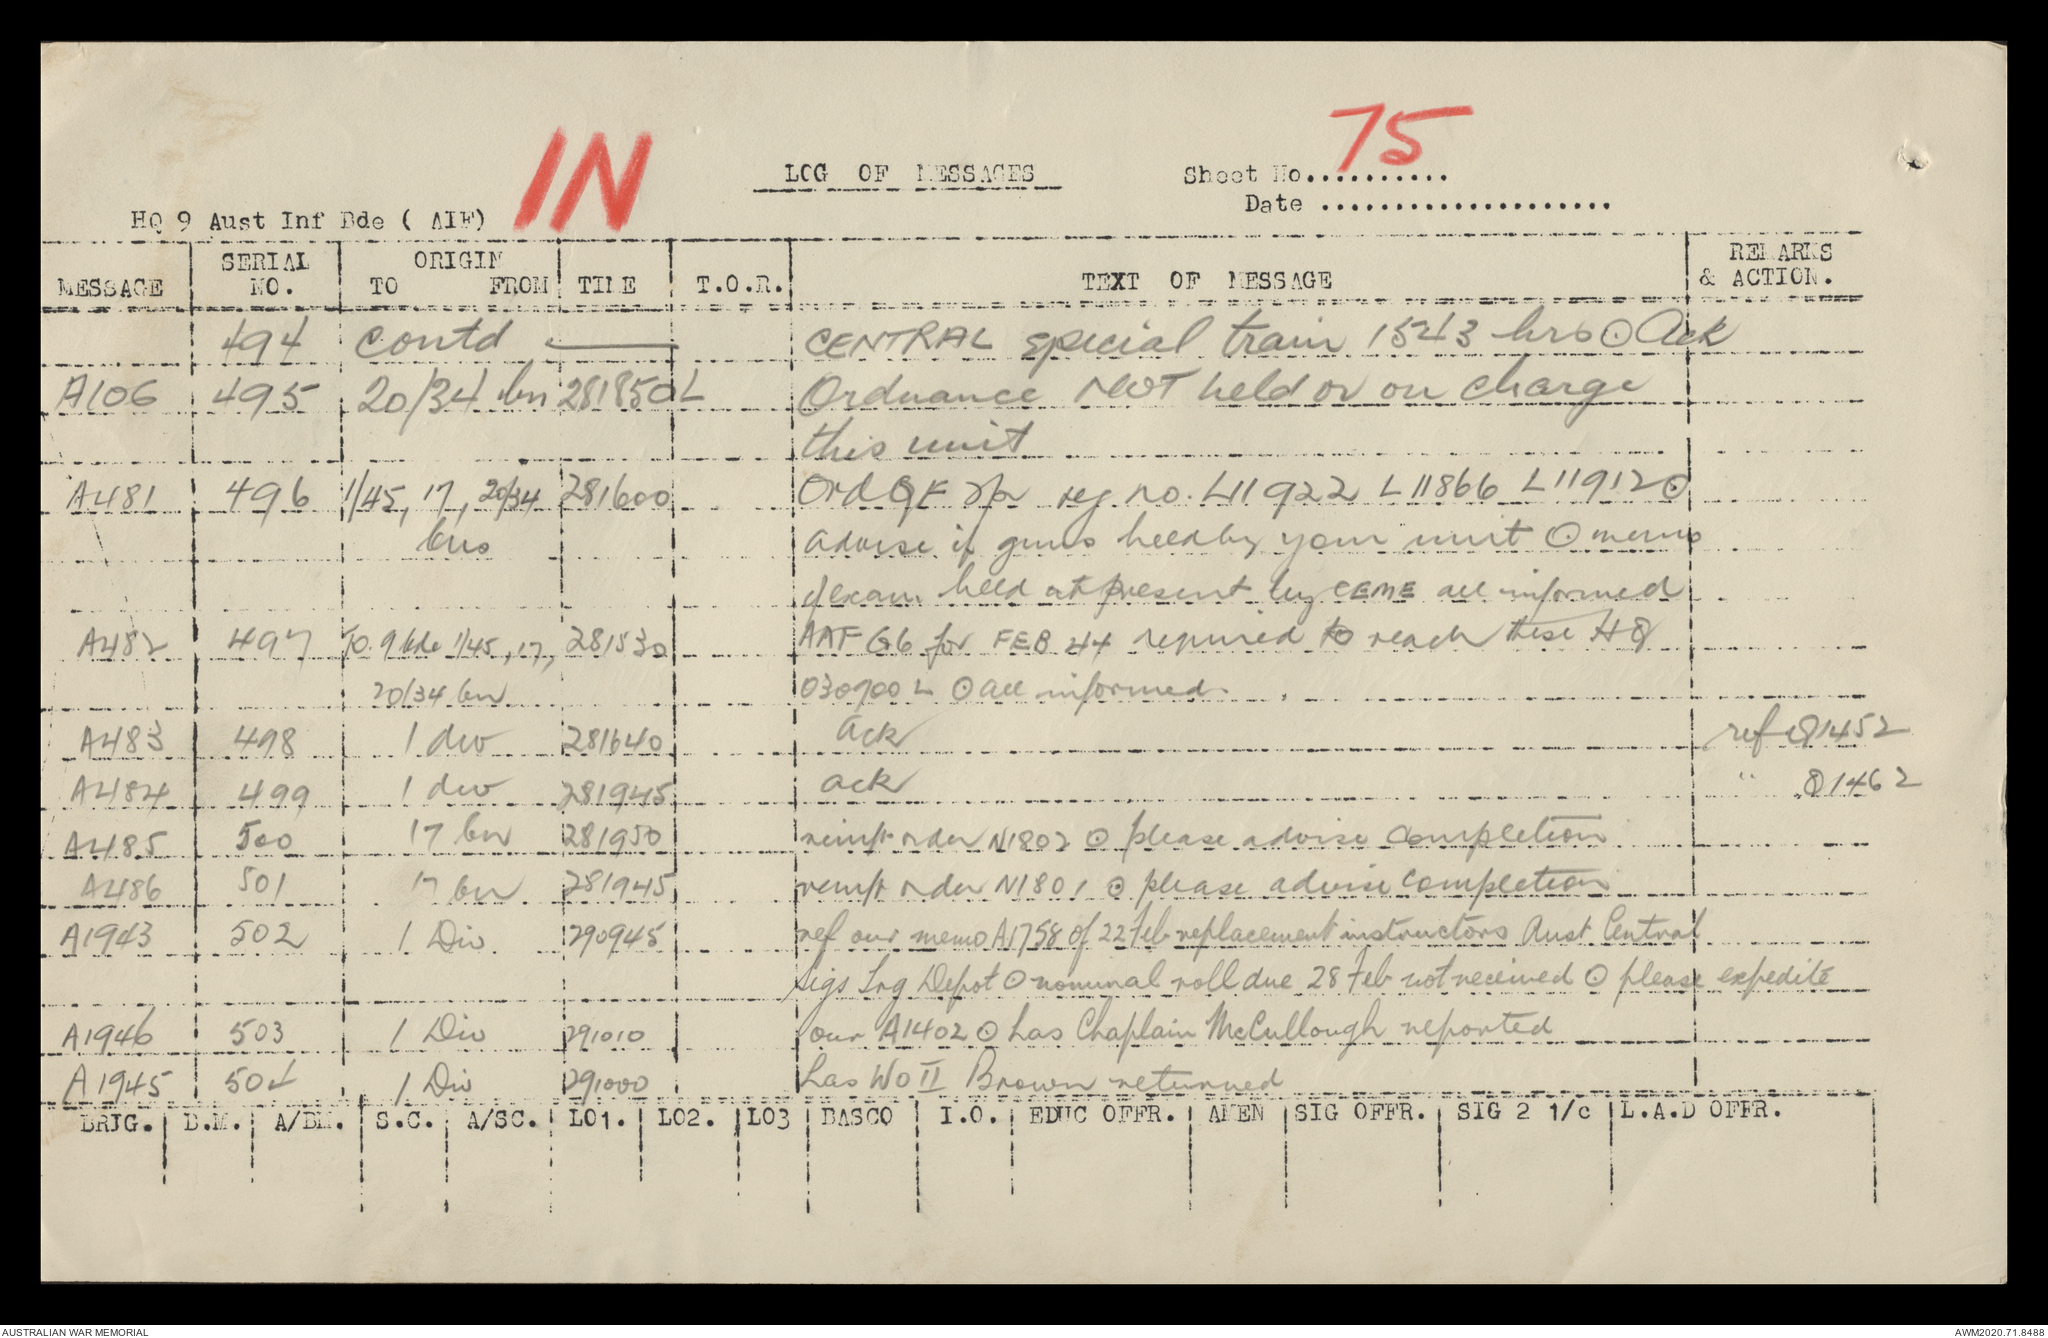 IN
LOG OF MESSAGES
Sheet No.......... 75
Date ....................
HQ 9 Aust Inf Bde ( AIF)
MESSAGE SERIAL NO. ORIGIN TO FROM TIME T.O.R. TEXT OF MESSAGE REMARKS & ACTION.
494 contd CENTRAL special train 1543 hrs ⊙ Ack
A106 495 20/34 bn 281850L Ordnance NOT held or on charge
this unit
A481 496 1/45, 17, 20/34 281600 Ord QF 2pr reg no. L11922 L11866 L11912 ⊙
bns advise if guns held by your unit ⊙ memo
of exam held at present by CEME all informed
A482 497 TO. 9 bde 1/45, 17, 281530 AAF G6 for FEB 44 required to reach these HQ
20/34 bn 030900L ⊙ all informed.
A483 498 1 div 281640 Ack ref Q1452
A484 499 1 div 281945 ack " Q1462
A485 500 17 bn 281950 reinft order N1802 ⊙ please advise completion
A486 501 17 bn 281945 reinft order N1801 ⊙ please advise completion
A1943 502 1 Div 290945 ref our memo A1758 of 22 Feb replacement instructors Aust Central
Sigs Trg Depot ⊙ nominal roll due 28 Feb not received ⊙ please expedite
A1946 503 1 Div 291010 our A1402 ⊙ has Chaplain McCullough reported
A1945 504 1 Div 291000 has WO II Brown returned
BRIG. B.M. A/BM. S.C. A/SC. LO1. LO2. LO3 BASCO I.O. EDUC OFFR. AMEN SIG OFFR. SIG 2 1/c L.A.D OFFR.
AUSTRALIAN WAR MEMORIAL AWM2020.71.8488